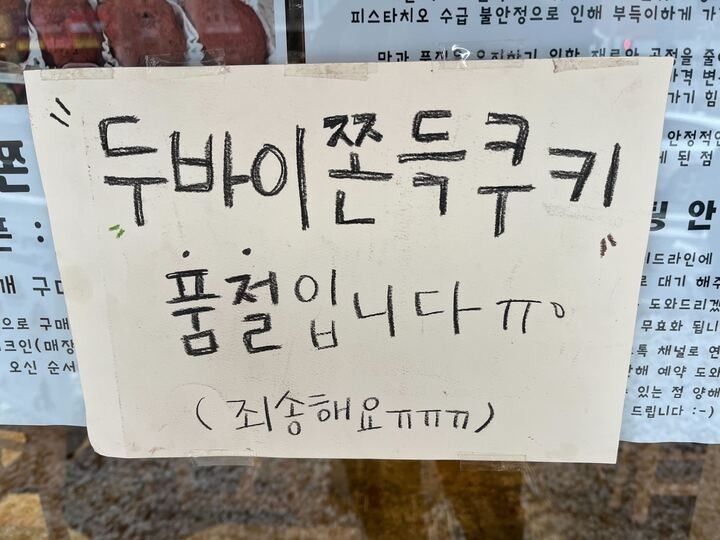 피스타치오 수급 불안정으로 인해 부득이하게 가
두바이쫀득쿠키
품절입니다 ㅠ。
(죄송해요ㅠㅠㅠ)
쫀
개 구매
으로 구매
크인(매장
오신 순서
가격 변
가기 힘
안정적인
게 된 점
딩 안
이드라인에
로 대기 해주
도와드리겠
무효화 됩니
톡 채널로 연
해 예약 도와
있는 점 양해
드립니다 :-)